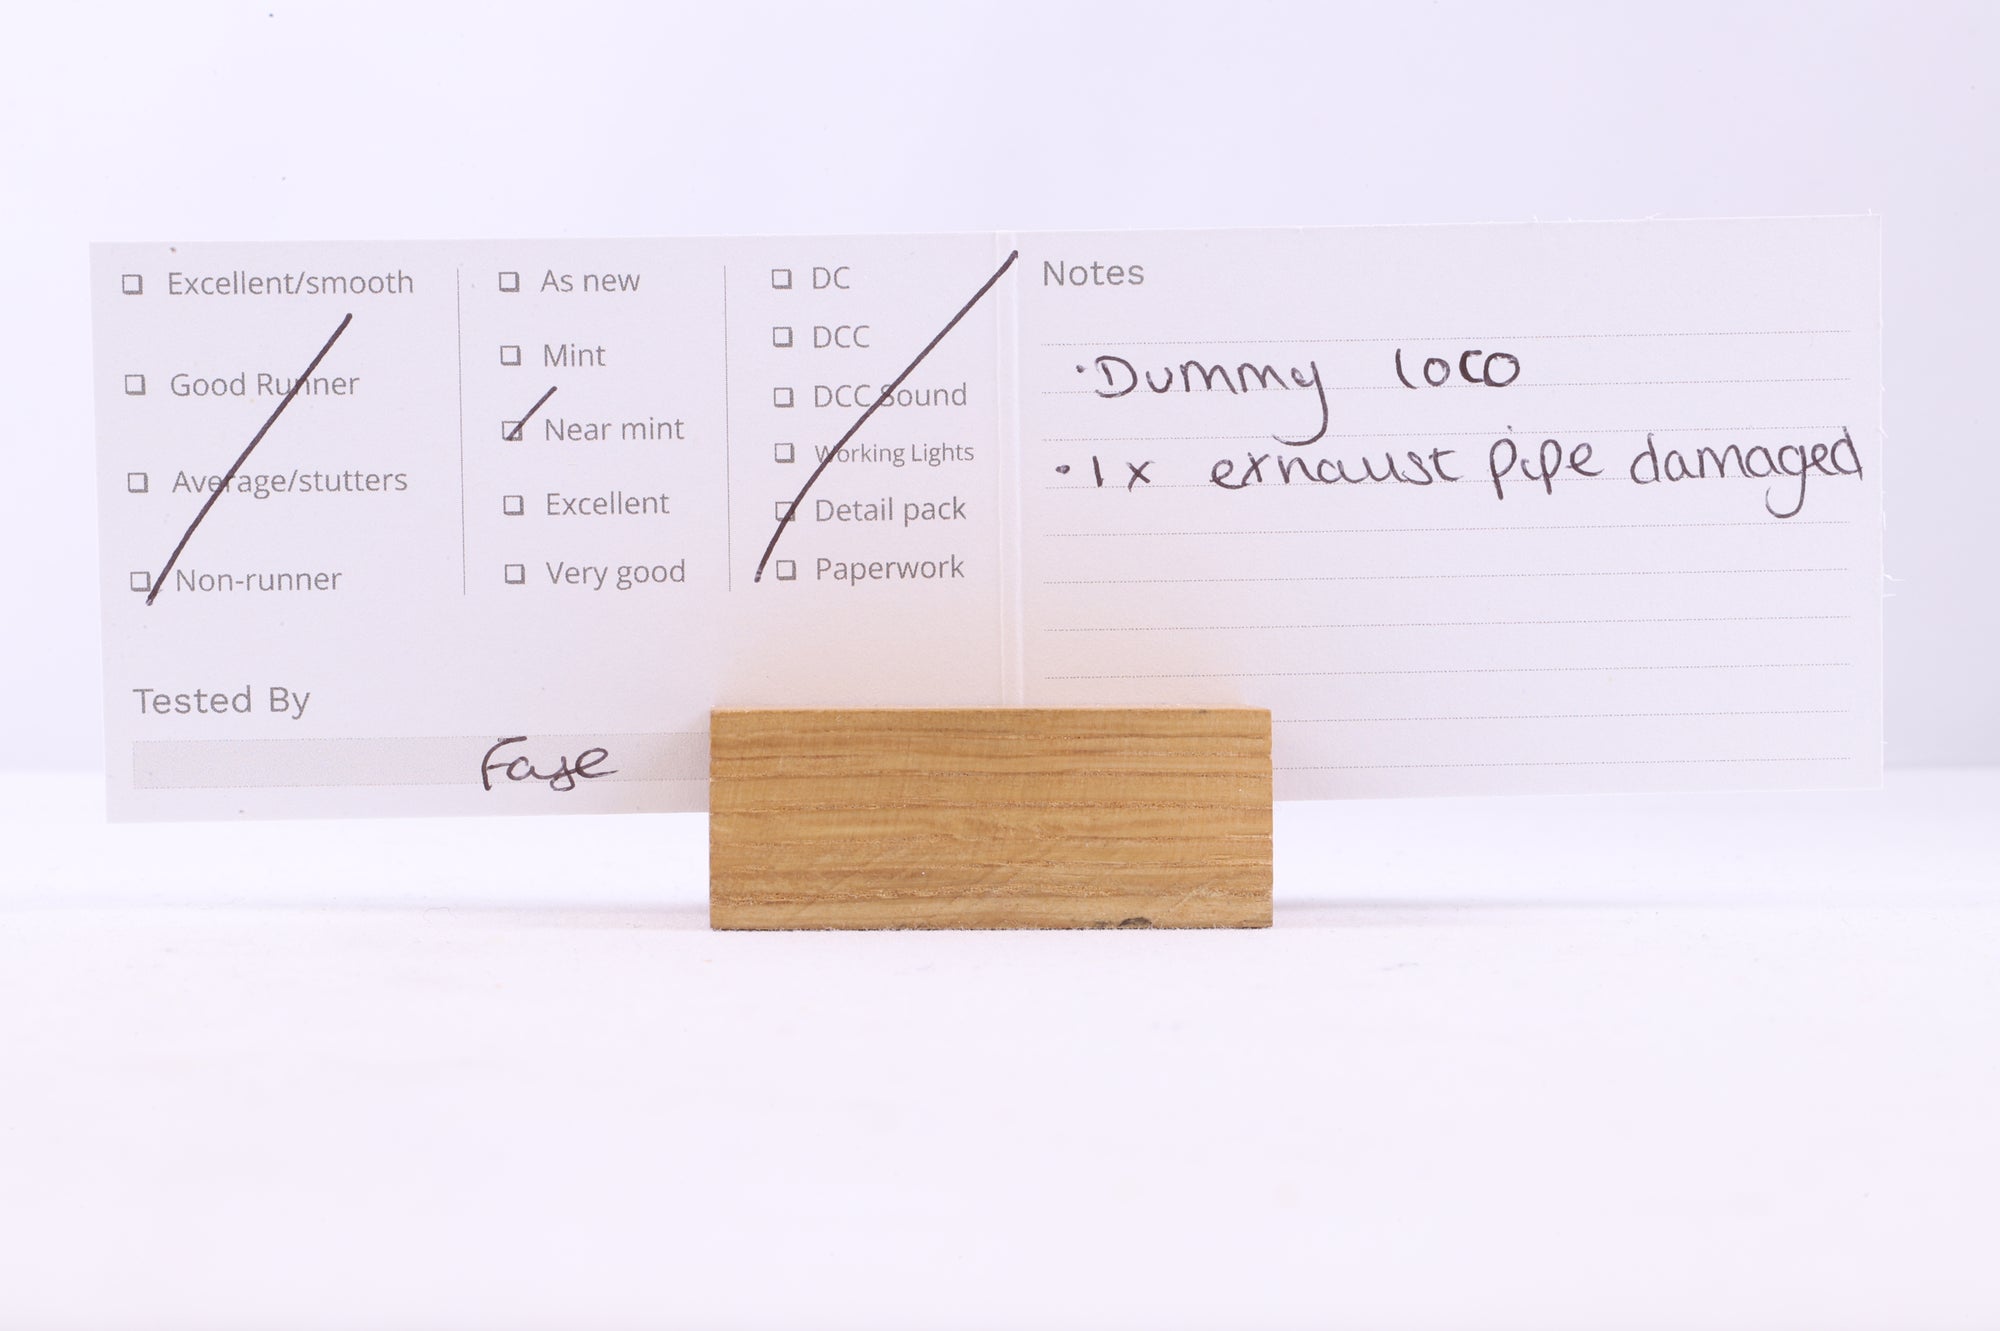 Excellent/smooth
Good Runner
Average/stutters
Non-runner
As new
Mint
Near mint
Excellent
Very good
DC
DCC
DCC Sound
Working Lights
Detail pack
Paperwork
Tested By
Faye
Notes
·Dummy loco
·1x exhaust pipe damaged